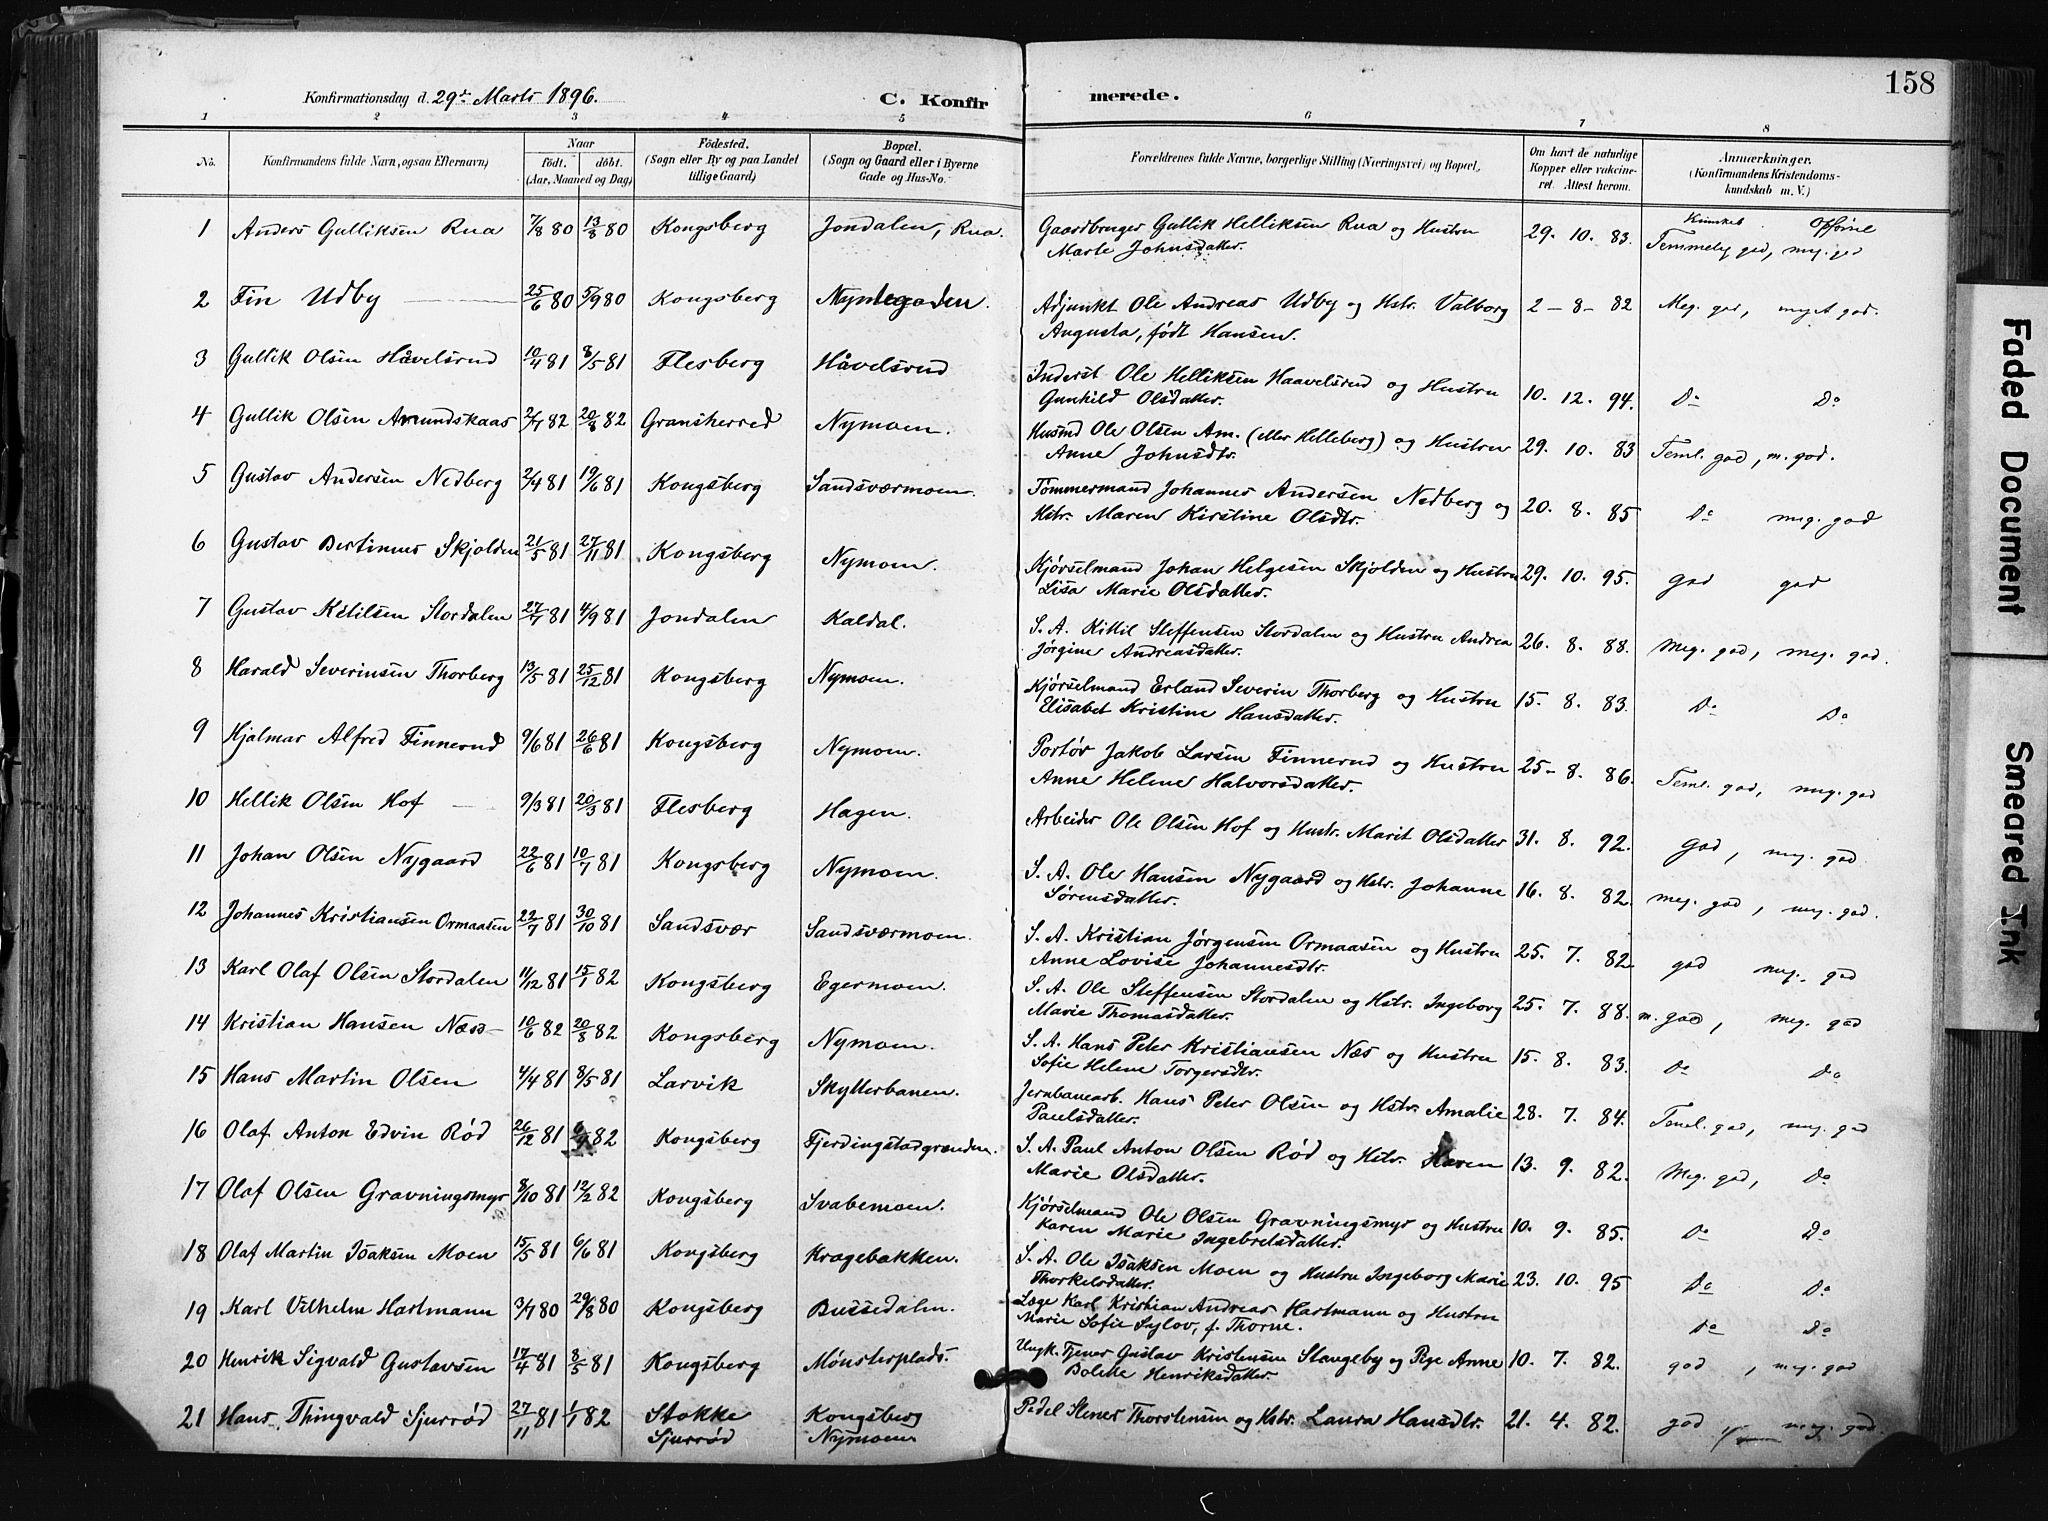 158
Konfirmationsdag d. 29de Marts 1896.
C. Konfirmerede.
1 2 3 4 5 6 7 8
No. Konfirmandens fulde Navn, ogsaa Efternavn) Naar født. døbt. (Aar, Maaned og Dag) Fødested. (Sogn eller By og paa Landet tillige Gaard) Bopæl. (Sogn og Gaard eller i Byerne Gade og Hus-No. Forældrenes fulde Navne, borgerlige Stilling (Næringsvei) og Bopæl. Om havt de naturlige Kopper eller vakcineret. Attest herom. Anmærkninger. (Konfirmandens Kristendomskundskab m. V.)
1 Anders Gulliksen Rua 7/8 80 13/8 80 Kongsberg Jondalen, Rua. Gaardbruger Gullik Helliksen Rua og Hustru 29. 10. 83. Kunskab. Opførsel
Marte Johnsdatter. Temmelig god, meg. god
2 Fin Udby 25/6 80 5/9 80 Kongsberg Nymdegaden. Adjunkt Ole Andreas Udby og Hstr. Valborg 2-8-82 Meg. god, meget god.
Augusta, født Hansen.
3 Gullik Olsen Håvelsrud 10/4 81 8/5 81 Flesberg Håvelsrud Inderst Ole Helliksen Haavelsrud og Hustru
Gunhild Olsdatter. 10. 12. 94. Do Do
4 Gullik Olsen Amundskaas 2/1 82 20/8 82 Gransherred Nymoen. Husmd Ole Olsen Am. (eller Helleberg) og Hustru
Anne Johnsdtr. 29. 10. 83 Teml. god, m. god.
5 Gustav Andersen Nedberg 2/4 81 19/6 81 Kongsberg Sandsværmoen. Tømmermand Johannes Andersen Nedberg og
Hstr. Maren Kirstine Olsdtr. 20. 8. 85 Do meg. god
6 Gustav Bertinues Skjolden 21/5 81 27/11 81 Kongsberg Nymoen. Kjørselmand Johan Helgesen Skjolden og Hustru 29. 10. 95. god god
Lisa Marie Olsdatter.
7 Gustav Ketilsen Stordalen 27/7 81 4/9 81 Jondalen Kaldal. S. A. Kittil Steffensen Stordalen og Hustru Andrea
Jørgine Andreasdatter. 26. 8. 88. Meg. god, meg. god.
8 Harald Severinsen Thorberg 13/5 81 25/12 81 Kongsberg Nymoen. Kjørselmand Erland Severin Thorberg og Hustru 15. 8. 83. Do Do
Elisabet Kristine Hansdatter.
9 Hjalmar Alfred Finnerud 9/6 81 26/6 81 Kongsberg Nymoen. Portør Jakob Larsen Finnerud og Hustru 25-8. 86. Teml. god, meg. god
Anne Helene Halvorsdatter.
10 Hellik Olsen Hof 9/3 81 20/3 81 Flesberg Hagen. Arbeider Ole Olsen Hof og Hustr. Marit Olsdatter 31. 8. 92. god, meg. god
11 Johan Olsen Nygaard 22/6 81 10/7 81 Kongsberg Nymoen. S. A. Ole Hansen Nygaard og Hstr. Johanne 16. 8. 82. meg. god, meg. god.
Sørensdatter.
12 Johannes Kristiansen Ormaasen 22/7 81 30/10 81 Sandsvær Sandsværmoen. S. A. Kristian Jørgensen Ormaasen og Hustru 25. 7. 82. god meg. god
Anne Lovise Johannesdtr.
13 Karl Olaf Olsen Stordalen 11/12 81 15/1 82 Kongsberg Egermoen. S. A. Ole Steffensen Stordalen og Hstr. Ingeborg 25. 7. 88. m. god, meg. god
Marie Thomasdatter.
14 Kristian Hansen Næss 10/6 82 20/8 82 Kongsberg Nymoen. S. A. Hans Peter Kristiansen Næs og Hustru 15. 8. 83. Do Do
Sofie Helene Torgersdtr.
15 Hans Martin Olsen 4/4 81 8/5 81 Larvik Skytterbanen. Jernbanearb. Hans Peter Olsen og Hstr. Amalie 28. 7. 84. Teml. god, meg. god
Paulsdatter.
16 Olaf Anton Edvin Rød 26/12 81 6/9 82 Kongsberg Fjerdingstadgrænden. S. A. Paul Anton Olsen Rød og Hstr. Karen 13. 9. 82. Meg. god, Do
Marie Olsdatter.
17 Olaf Olsen Gravningsmyr 8/10 81 12/2 82 Kongsberg Svabemoen. Kjørselmand Ole Olsen Gravningsmyr og Hustru 10. 9. 85. Do Do
Karen Marie Ingebretsdatter.
18 Olaf Martin Isaksen Moen 15/5 81 6/6 81 Kongsberg Kragebakken. S. A. Ole Isaksen Moen og Hustru Ingeborg Marie 23. 10. 95 Do Do
Thorkelsdatter.
19 Karl Vilhelm Hartmann 3/7 80 29/8 80 Kongsberg Bussedalen. Læge Karl Kristian Andreas Hartmann og Hustru
Marie Sofie Sylov, f. Thorne. Do Do
20 Henrik Sigvald Gustavsen 17/4 81 8/5 81 Kongsberg Mønsterplads. Ungk. Tjener Gustav Kristensen Stangeby og Pge Anne 10. 7. 82. god, meg. god
Bolette Henriksdatter.
21 Hans Thingvald Sjurrød 27/11 81 1/1 82 Stokke Kongsberg Pedel Stener Thorstensen og Hstr. Laura Hansdtr. 21. 4. 82. god meg. god.
Sjurrød Nymoen
Faded Document
Smeared Ink